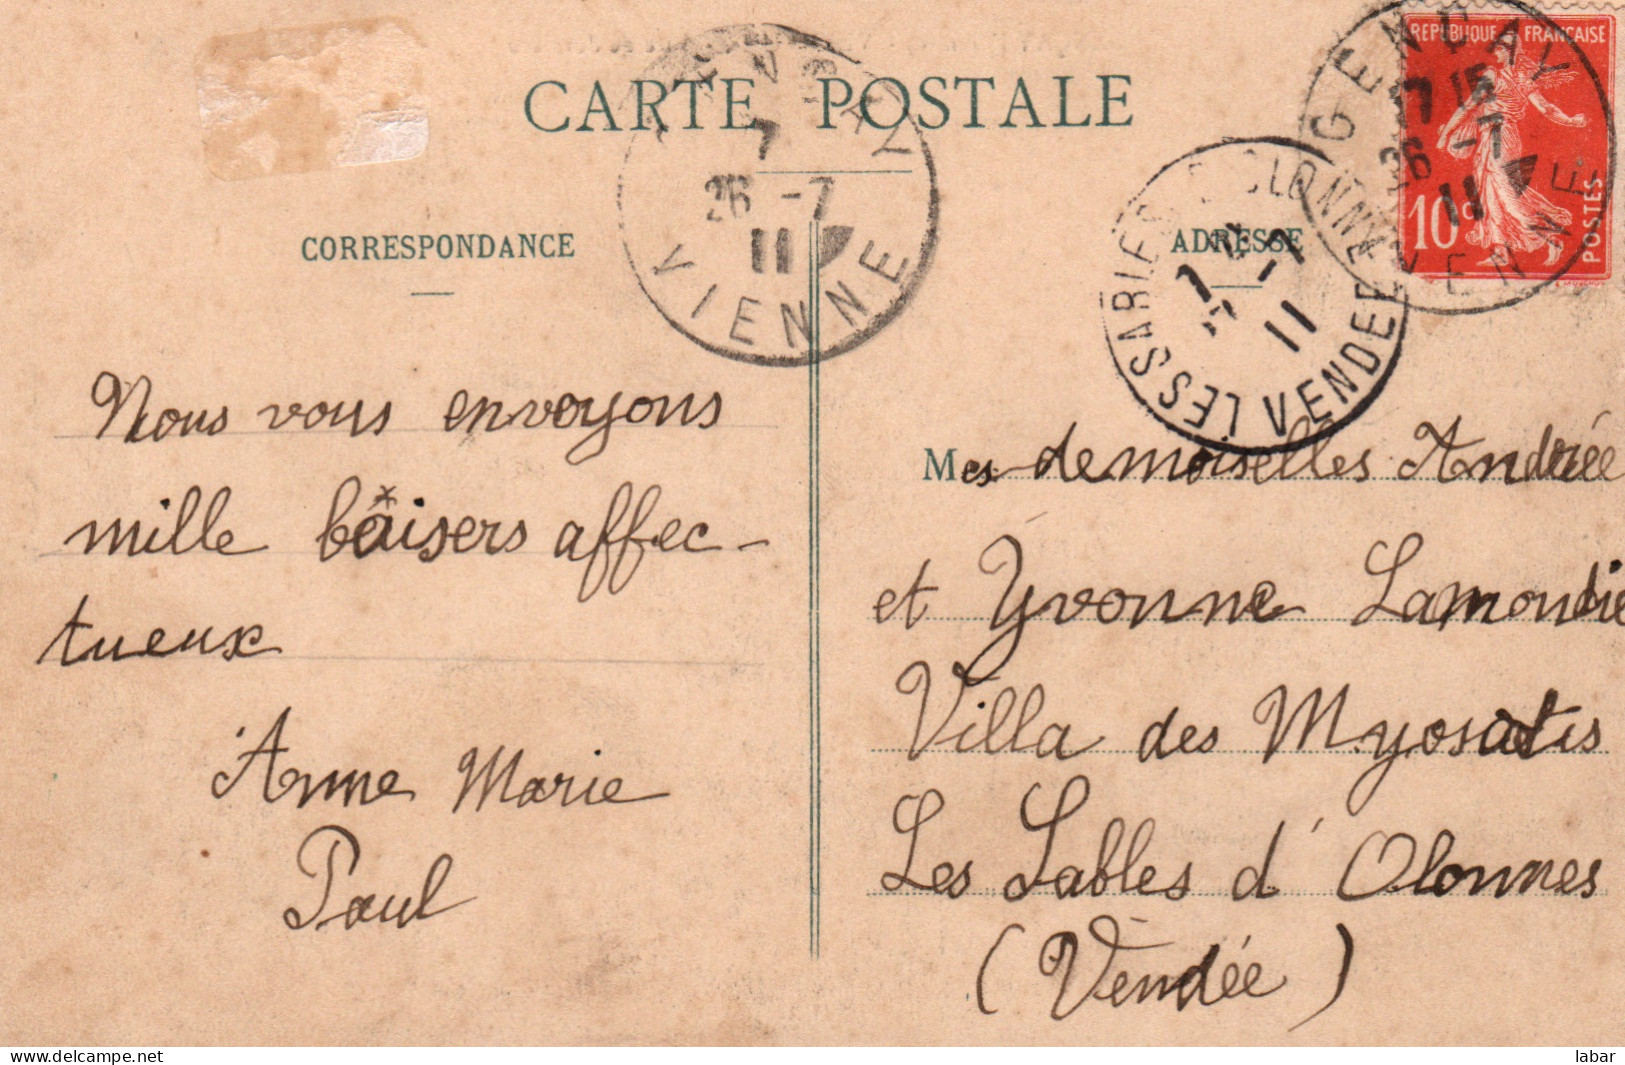 CARTE POSTALE
CORRESPONDANCE
ADRESSE
REPUBLIQUE FRANÇAISE
10c
POSTES
GENÇAY
15
26 -7
11
VIENNE
7
26 -7
11
VIENNE
LES SABLES D'OLONNE
-7
11
VENDEE
Nous vous envoyons
mille baisers affec-
tueux
Anne Marie
Paul
Mes demoiselles Andrée
et Yvonne Lamondie
Villa des Myosotis
Les Sables d'Olonnes
(Vendée)
www.delcampe.net
labar